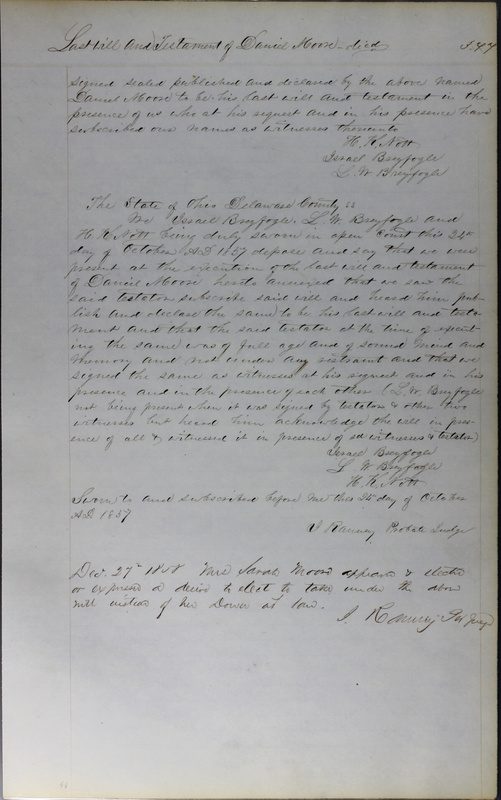 Last will And Testament of Daniel Moore - died
signed sealed published and declared by the above named
Daniel Moore to be his last will and testament in the
presence of us who at his request and in his presence have
subscribed our names as witnesses thereunto
H. K. Nott
Israel Breyfogle
L. W. Breyfogle
The State of Ohio Delaware County ss
We Israel Breyfogle. L. W. Breyfogle and
H. K. Nott being duly sworn in open Court this 24th
day of October A.D. 1857 depose and say that we were
present at the execution of the last will and testament
of Daniel Moore hereto annexed that we saw the
said testator subscribe said will and heard him pub-
lish and declare the same to be his last will and testa-
ment and that the said testator at the time of execut-
ing the same was of full age and of sound mind and
memory and not under any restraint and that we
signed the same as witnesses at his request and in his
presence and in the presence of each other (L. W. Breyfogle
not being present when it was signed by testator & other two
witnesses but heard him acknowledge the will in pres-
ence of all & witnessed it in presence of sd witnesses & testator)
Israel Breyfogle
L. W. Breyfogle
H. K. Nott
Sworn to and subscribed before me this 24 day of October
A.D. 1857
J Ranney Probate Judge
Dec. 27th 1858 Mrs Sarah Moore appears & elects
or expresses a desire to elect to take under the above
will instead of her Dower at law.
J. Ranney Judge